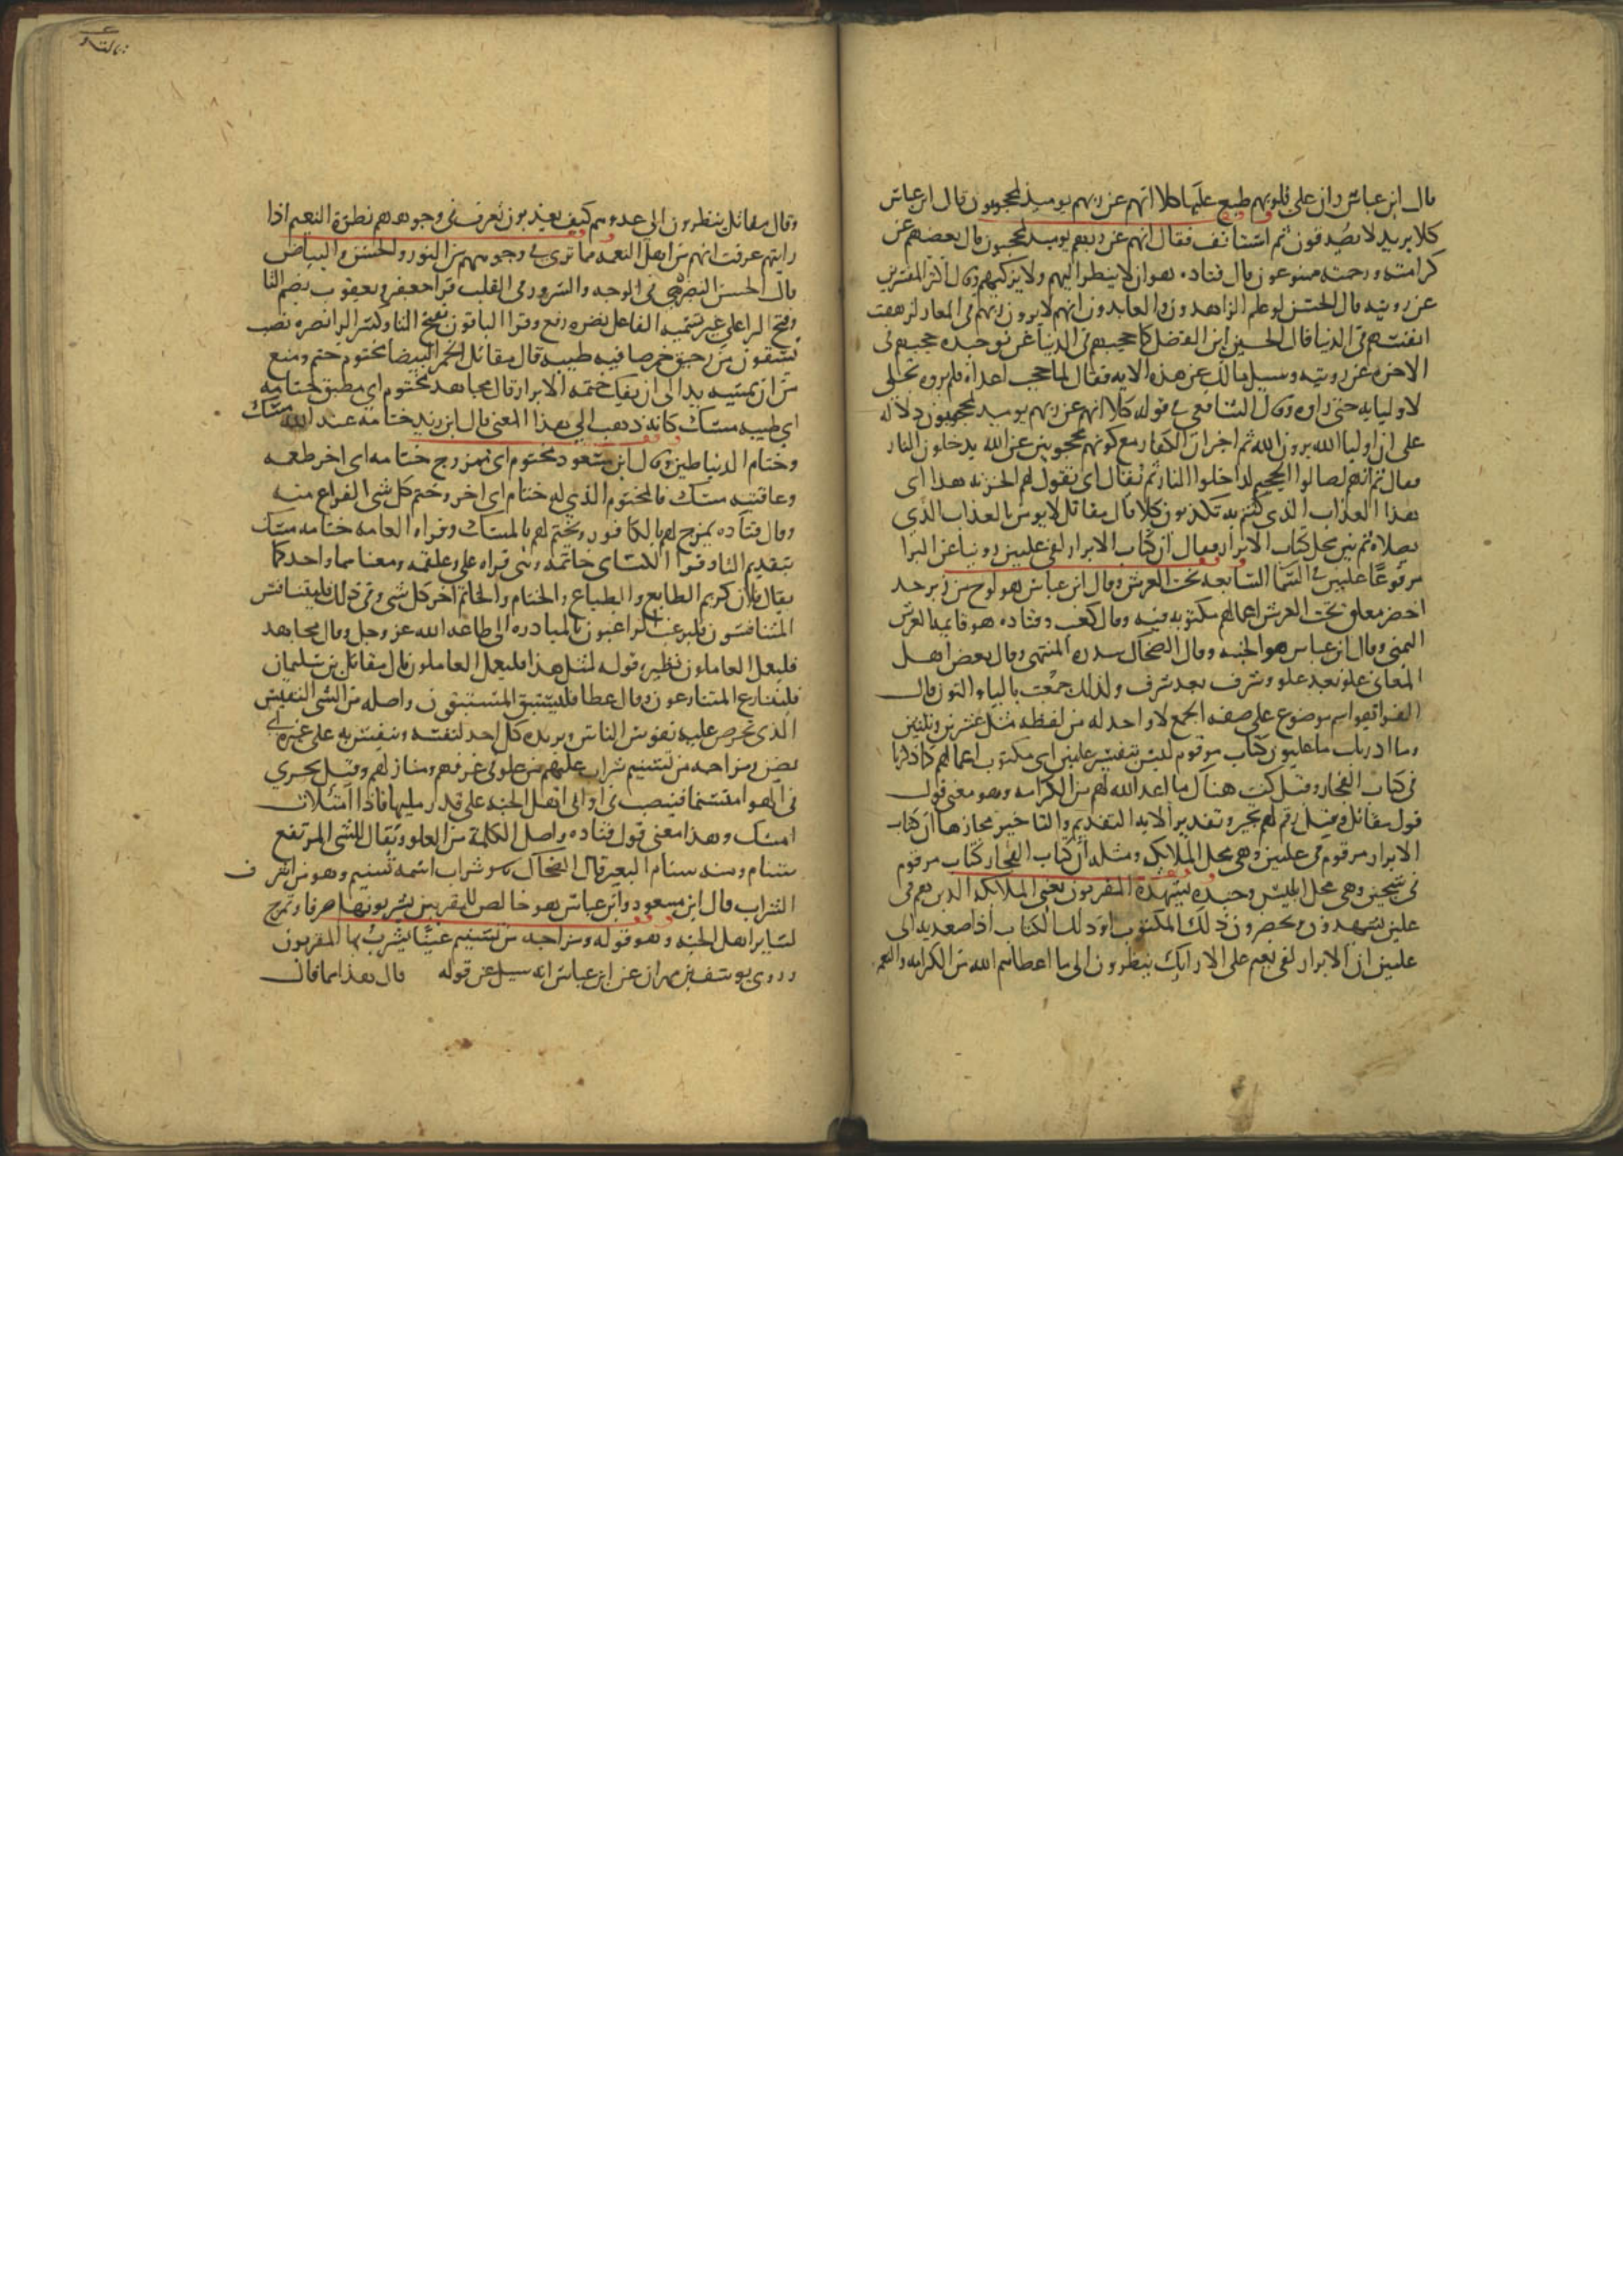 قال ابن عباس ران على قلوبهم طبع عليها كلا انهم عن ربهم يوميذ لمحجوبون قال ابن عباس
كلا يريد لا يصدقون ثم استانف فقال انهم عن ربهم يوميذ لمحجوبون قال بعضهم عن
كرامته ورحمته ممنوعون قال قتاده هو ان لا ينظر اليهم ولا يزكيهم وقال اكثر المفسرين
عن رويته قال الحسن لو علم الزاهدون والعابدون انهم لا يرون ربهم في المعاد لزهقت
انفسهم في الدنيا قال الحسين ابن الفضل كما حجبهم في الدنيا عن توحيده حجبهم في
الاخره عن رويته وسيل مالك عن هذه الايه فقال لما حجب اعداه فلم يروه تجلى
لاوليايه حتى راوه وقال الشافعي في قوله كلا انهم عن ربهم يوميذ لمحجوبون دلاله
على ان اوليا الله يرون الله ثم اخبر ان الكفار مع كونهم محجوبين عن الله يدخلون النار
فقال ثم انهم لصالوا الجحيم لداخلوا النار ثم يقال اى تقول لهم الخزنه هذا اى
هذا العذاب الذى كنتم به تكذبون كلا قال مقاتل لا يومن بالعذاب الذي
يصلاه ثم بين محل كتاب الابرار فقال ان كتاب الابرار لفي عليين روينا عن البرا
مرفوعًا عليين في السما السابعه تحت العرش وقال ابن عباس هو لوح من زبرجد
اخضر معلق تحت العرش اعمالهم مكتوبه فيه وقال كعب وقتاده هو قايمة العرش
اليمنى وقال ابن عباس هو الجنه وقال الضحاك سدره المنتهى وقال بعض اهل
المعاني علو بعد علو وشرف بعد شرف ولذلك جمعت باليا والنون قال
الفرا هو اسم موضوع على صفه الجمع لا واحد له من لفظه مثل عشرين وثلثين
وما ادريك ما عليون كتاب مرقوم ليس بتفسير عليين اى مكتوب اعمالهم كما ذكرنا
في كتاب الفجار وقيل كتب هناك ما اعد الله لهم من الكرامه وهو معنى قول
قول مقاتل وقيل رقم لهم بخير وتقدير الايه التقديم والتاخير مجازها ان كتاب
الابرار مرقوم في عليين وهى محل الملايكه ومثله ان كتاب الفجار كتاب مرقوم
في سجين وهى محل ابليس وجنده يشهده المقربون يعنى الملايكه الذين هم في
عليين يشهدون ويحضرون ذلك المكتوب او ذلك الكتاب اذا صعد به الى
عليين ان الابرار لفي نعيم على الارايك ينظرون الى ما اعطاهم الله من الكرامه والنعمه
وقال مقاتل ينظرون الى عدوهم كيف يعذبون تعرف في وجوههم نضرة النعيم اذا
رايتهم عرفت انهم من اهل النعمه مما ترى في وجوههم من النور والحسن والبياض
قال الحسن النضره في الوجه والسرور في القلب قرا ابو جعفر ويعقوب بضم التا
وفتح الرا على غير تسميه الفاعل نضره رفع وقرا الباقون بفتح التا وكسر الرا نضره نصب
يسقون من رحيق خمر صافيه طيبه قال مقاتل الخمر البيضا مختوم ختم ومنع
من ان يمسه يد الى ان يفك ختمه الابرار قال مجاهد مختوم اى مطين ختامه
اي طينه مسك كانه ذهب الى هذا المعنى قال ابن زيد ختامه عند الله مسك
وختام الدنيا طين وقال ابن مسعود مختوم اى ممزوج ختامه اى اخر طعمه
وعاقبته مسك فالمختوم الذي له ختام اى اخر وختم كل شى الفراغ منه
وقال قتاده يمزج لهم بالكافور ويختم لهم بالمسك وقراه العامه ختامه مسك
بتقديم التا وقرا الكساى خاتمه وهى قراه علي وعلقمه ومعناهما واحد كما
يقال فلان كريم الطابع والطباع والختام والخاتم اخر كل شى وفي ذلك فليتنافس
المتنافسون فليرغب الراغبون بالمبادره الى طاعه الله عز وجل وقال مجاهد
فليعمل العاملون نظيره قوله لمثل هذا فليعمل العاملون قال مقاتل بن سليمان
فليتنازع المتنازعون وقال عطا فليستبق المستبقون واصله من الشى النفيس
الذى تحرص عليه نفوس الناس ويريده كل احد لنفسه وينفس به على غيره اي
يضن ومزاجه من تسنيم شراب عليهم من علو في غرفهم ومنازلهم وقيل يجري
في الهوا متسنما فينصب في اواني اهل الجنه على قدر مليها فاذا امتلات
امسك وهذا معنى قول قتاده واصل الكلمة من العلو ويقال للشى المرتفع
سنام ومنه سنام البعير قال الضحاك هو شراب اسمه تسنيم وهو من اشرف
الشراب قال ابن مسعود وابن عباس هو خالص للمقربين يشربونها صرفا ويمزج
لساير اهل الجنه وهو قوله ومزاجه من تسنيم عينًا يشرب بها المقربون
وروى يوسف بن مهران عن ابن عباس انه سيل عن قوله قال هذا مما قال